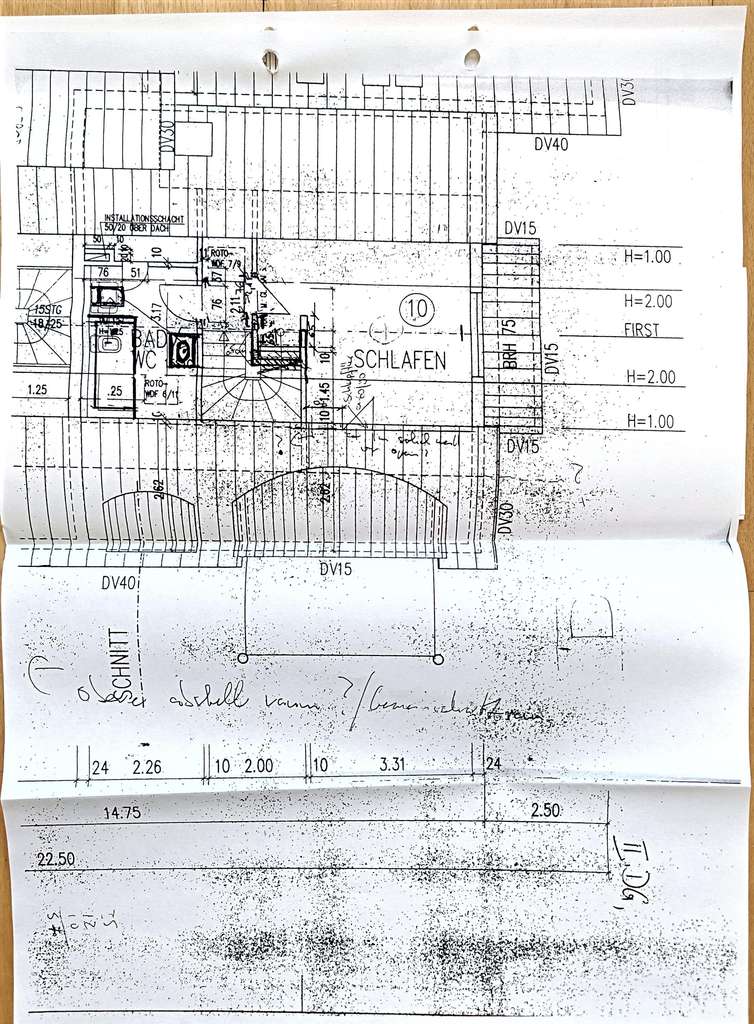 DV30
DV30
DV40
INSTALLATIONSSCHACHT
50/20 ÜBER DACH
DV15
50 10
10
ROTO-
WDF 7/9
H=1.00
76 51
57
H=2.00
15STG
18/25
4.17
76
2.11
10
FIRST
BAD
WC
SCHLAFEN
BRH 75
DV15
10
H=2.00
1.25
.25
ROTO-
WDF 6/11
1.45
10
H=1.00
DV15
?
2.62
2.62
DV30
DV40
DV15
SCHNITT
oberer abstellraum ?/Gemeinschaftsraum
24 2.26 10 2.00 10 3.31 24
14.75
2.50
22.50
II. DG,